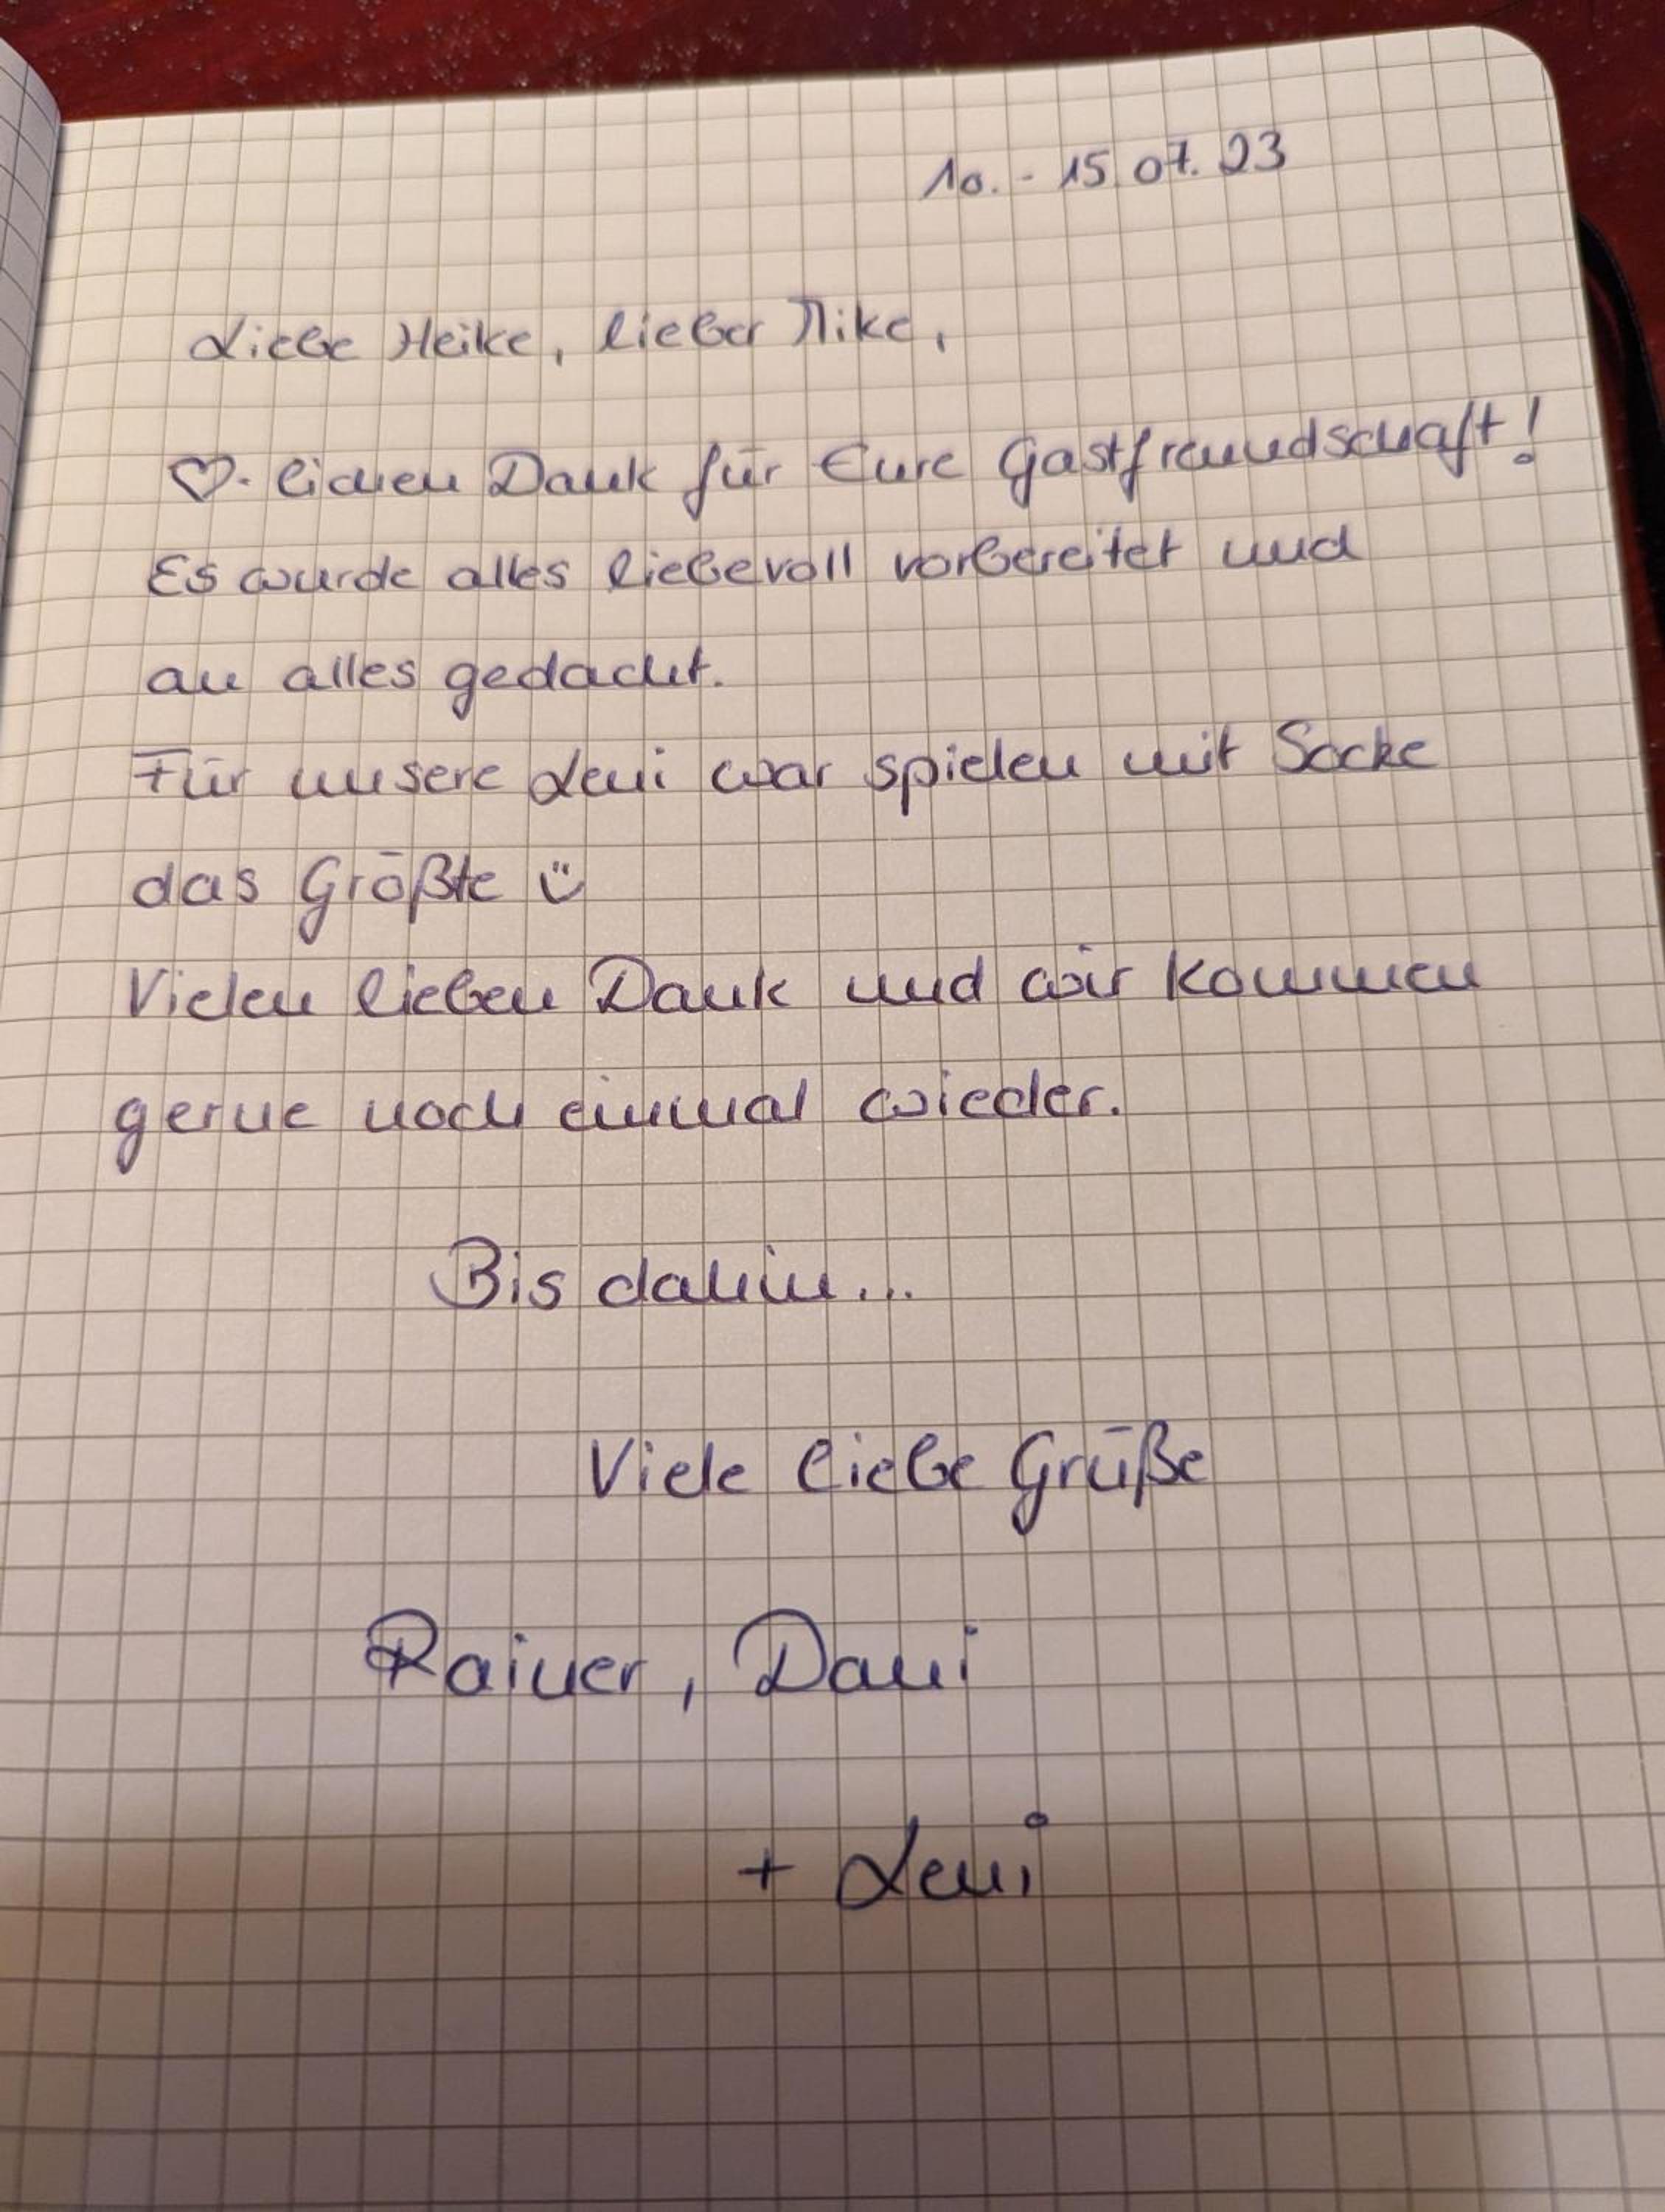 10. - 15.07.23
Liebe Heike, lieber Mike,
♡. lichen Dank für Eure Gastfreundschaft!
Es wurde alles liebevoll vorbereitet und
an alles gedacht.
Für unsere Leni war spielen mit Socke
das Größte ☺
Vielen lieben Dank und wir kommen
gerne noch einmal wieder.
Bis dahin...
Viele liebe Grüße
Rainer, Dani
+ Leni